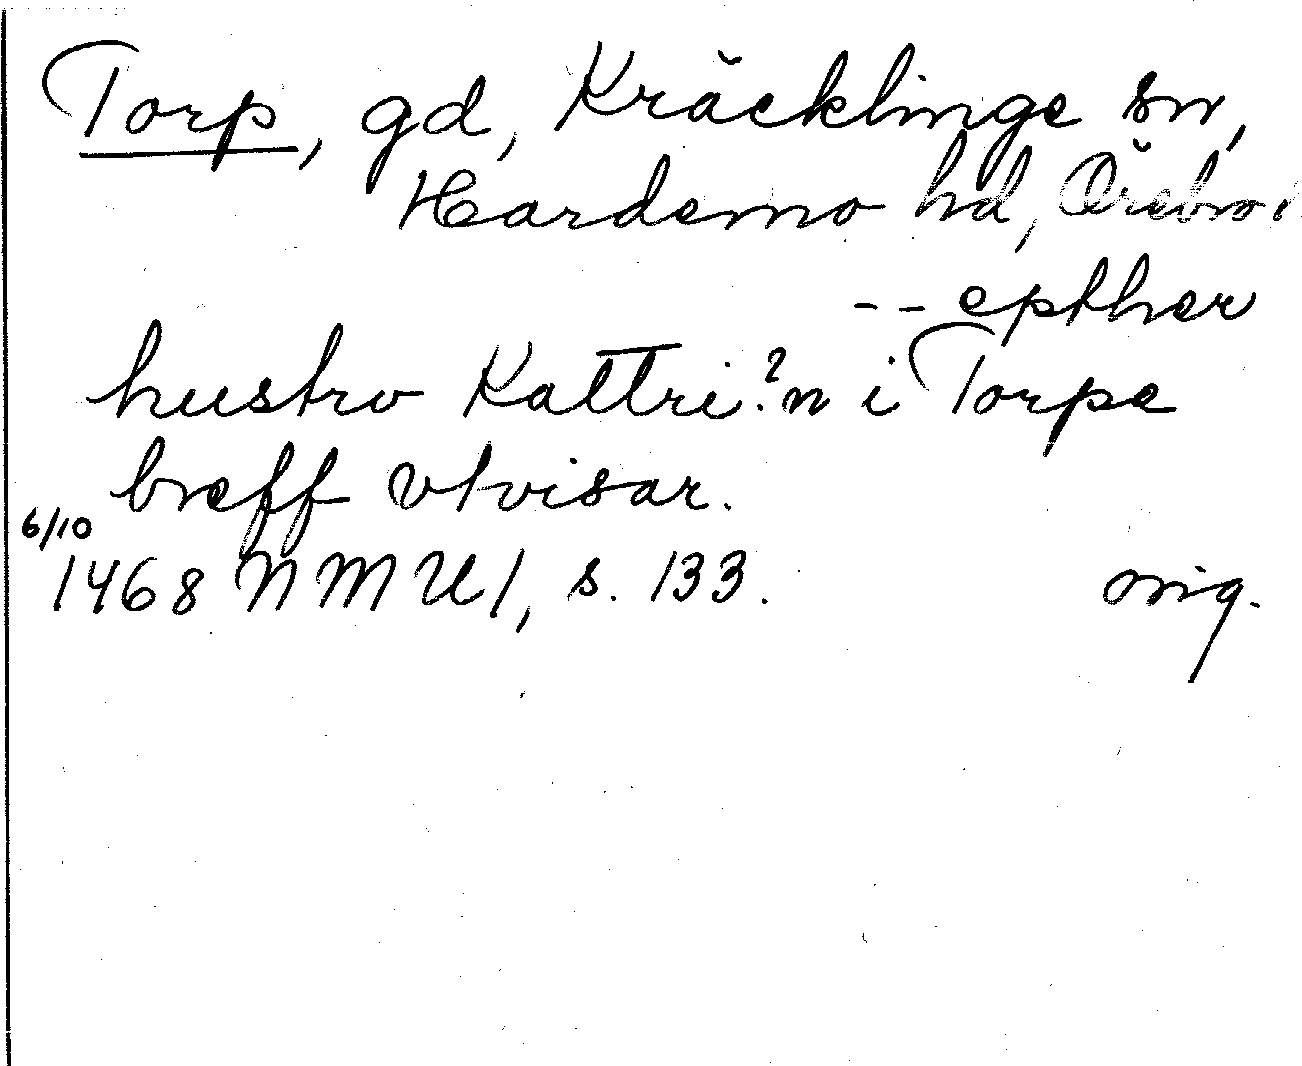 Torp, gd, Kräcklinge sn,
Hardemo hd, Örebro l
-- epther
hustro Kattri?n i Torpe
breff vtvisar.
6/10
1468 NMU 1, s. 133. orig.